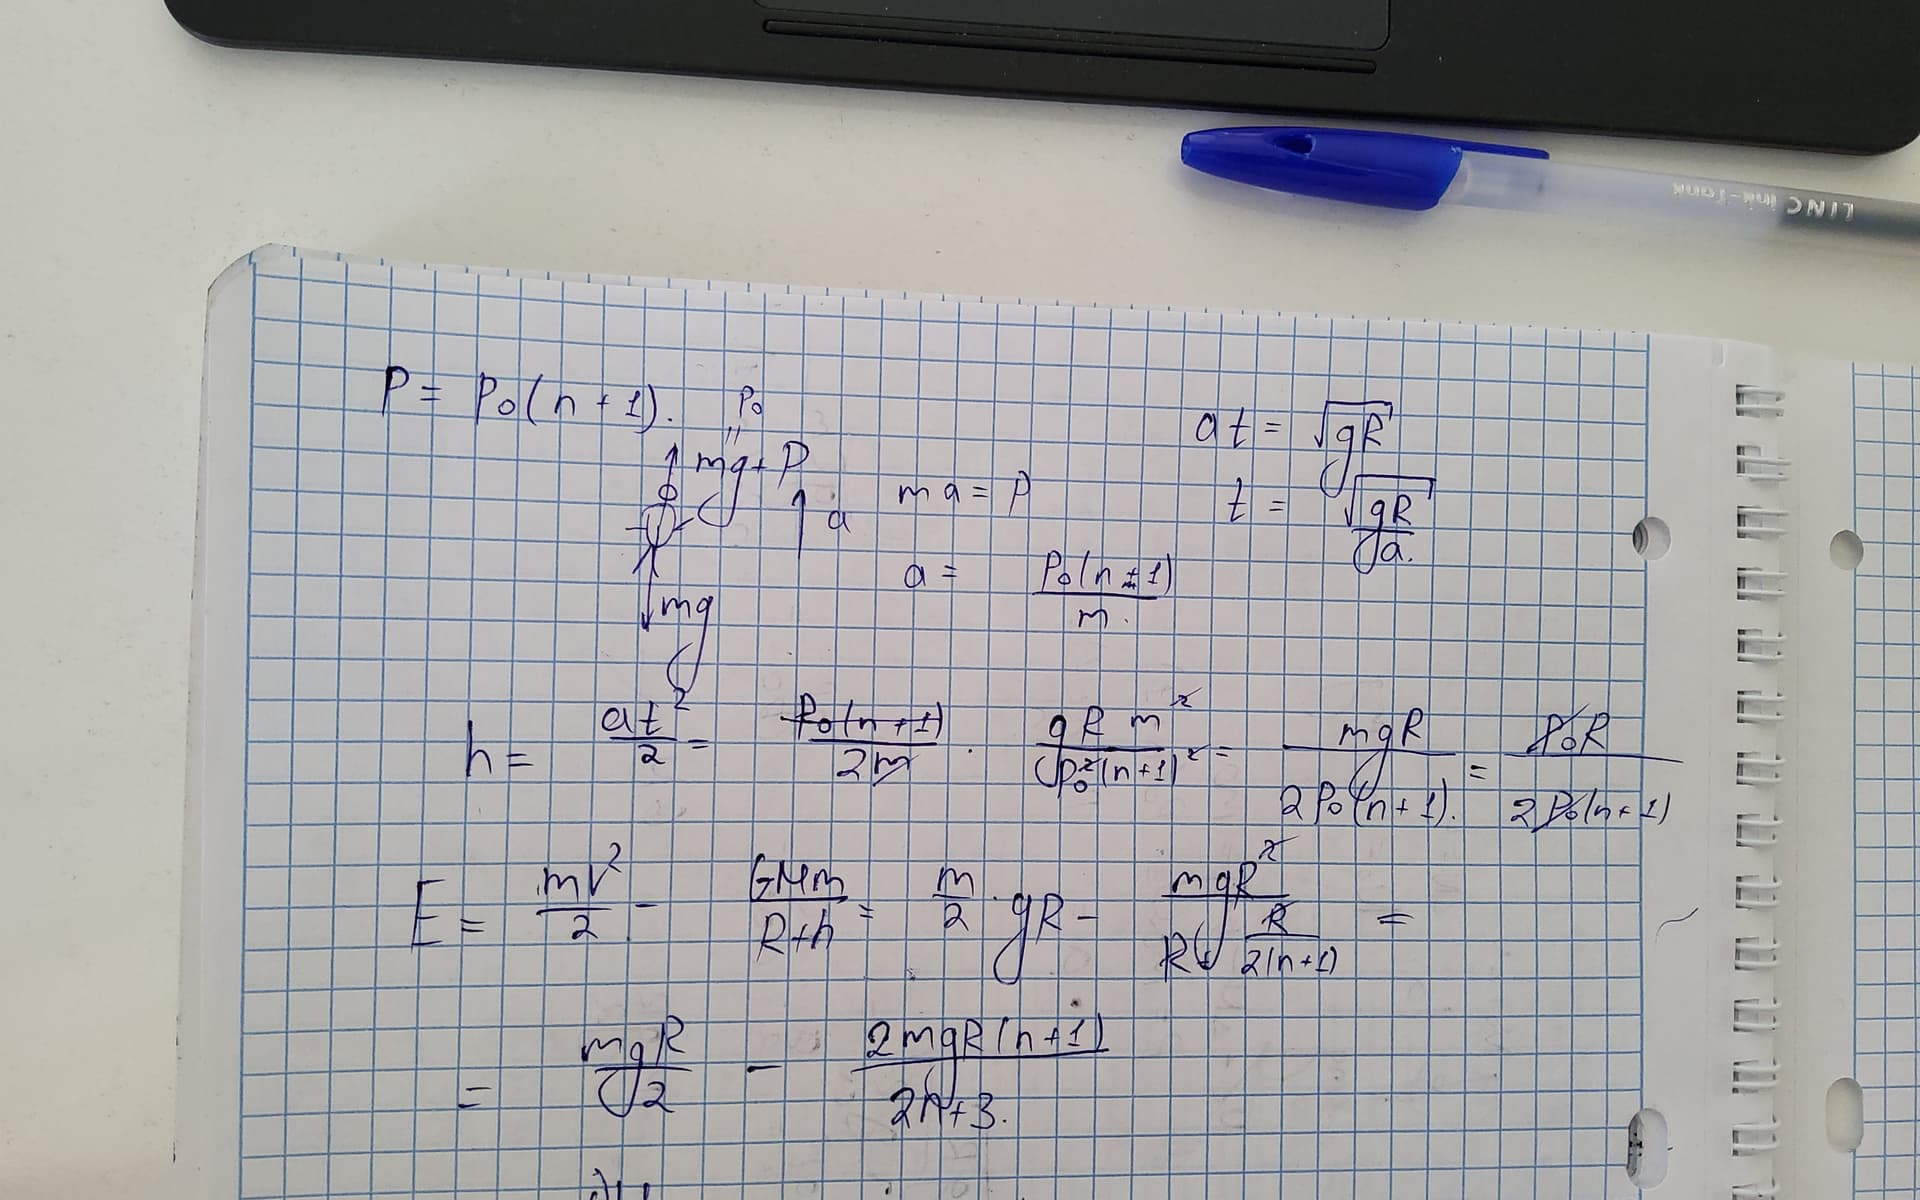 LINC Ink-Tank
P = P₀(n + 1).
P₀
"
mg + P
a
mg
ma = P
a = P₀(n ± 1) / m.
at = √gR
t = √gR / a.
h = at² / 2 = P₀(n + 1) / 2m · gR m² / P₀²(n+1)² = mgR / 2P₀(n + 1). = P₀R / 2P₀(n + 1)
E = mV² / 2 - GMm / R+h = m / 2 · gR - mgR² / R + R / 2(n+1) =
= mgR / 2 - 2mgR(n+1) / 2n+3.